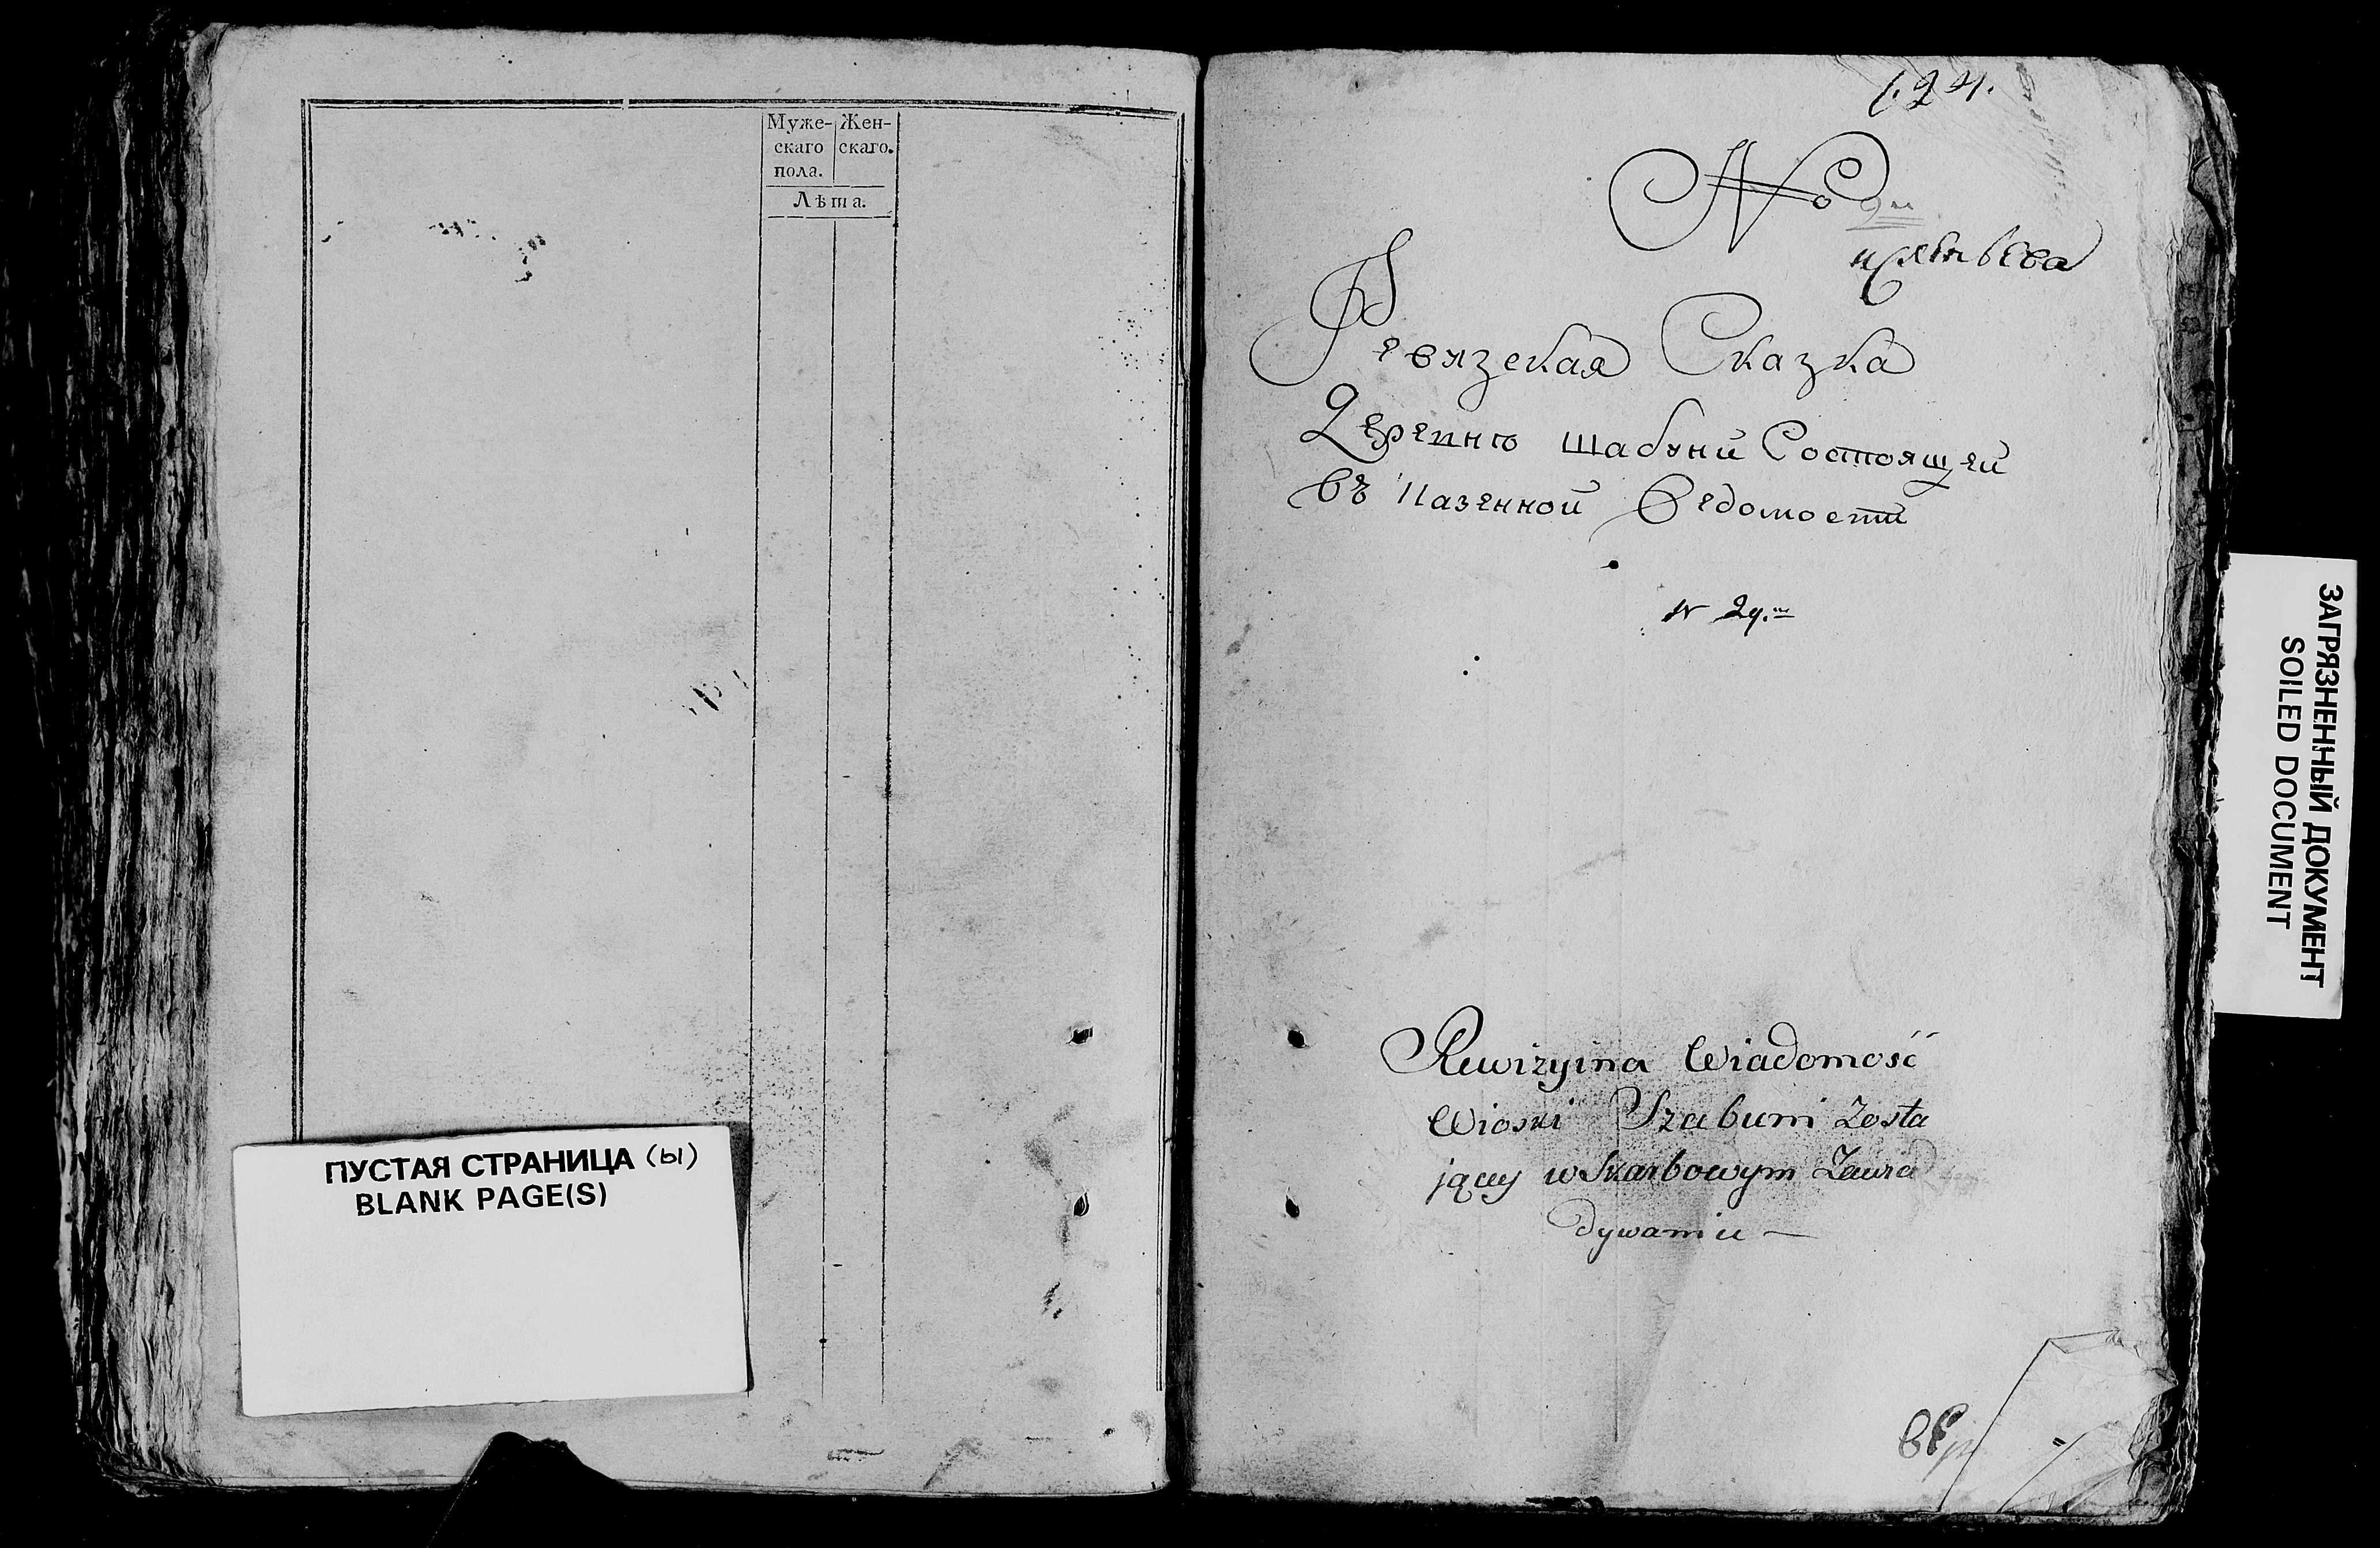 Муже- Жен-
скаго скаго.
пола.
Лѣта.
ПУСТАЯ СТРАНИЦА (ы)
BLANK PAGE(S)
124.
No
Ревизская Сказка
Деревню Шабуни Состоящей
въ Казенной Ведомости
N 24.
Rewizyina Wiadomość
Wioski Szabuni Zosta
jącey w Skarbowym Zawia
dywaniu —
ЗАГРЯЗНЕННЫЙ ДОКУМЕНТ
SOILED DOCUMENT